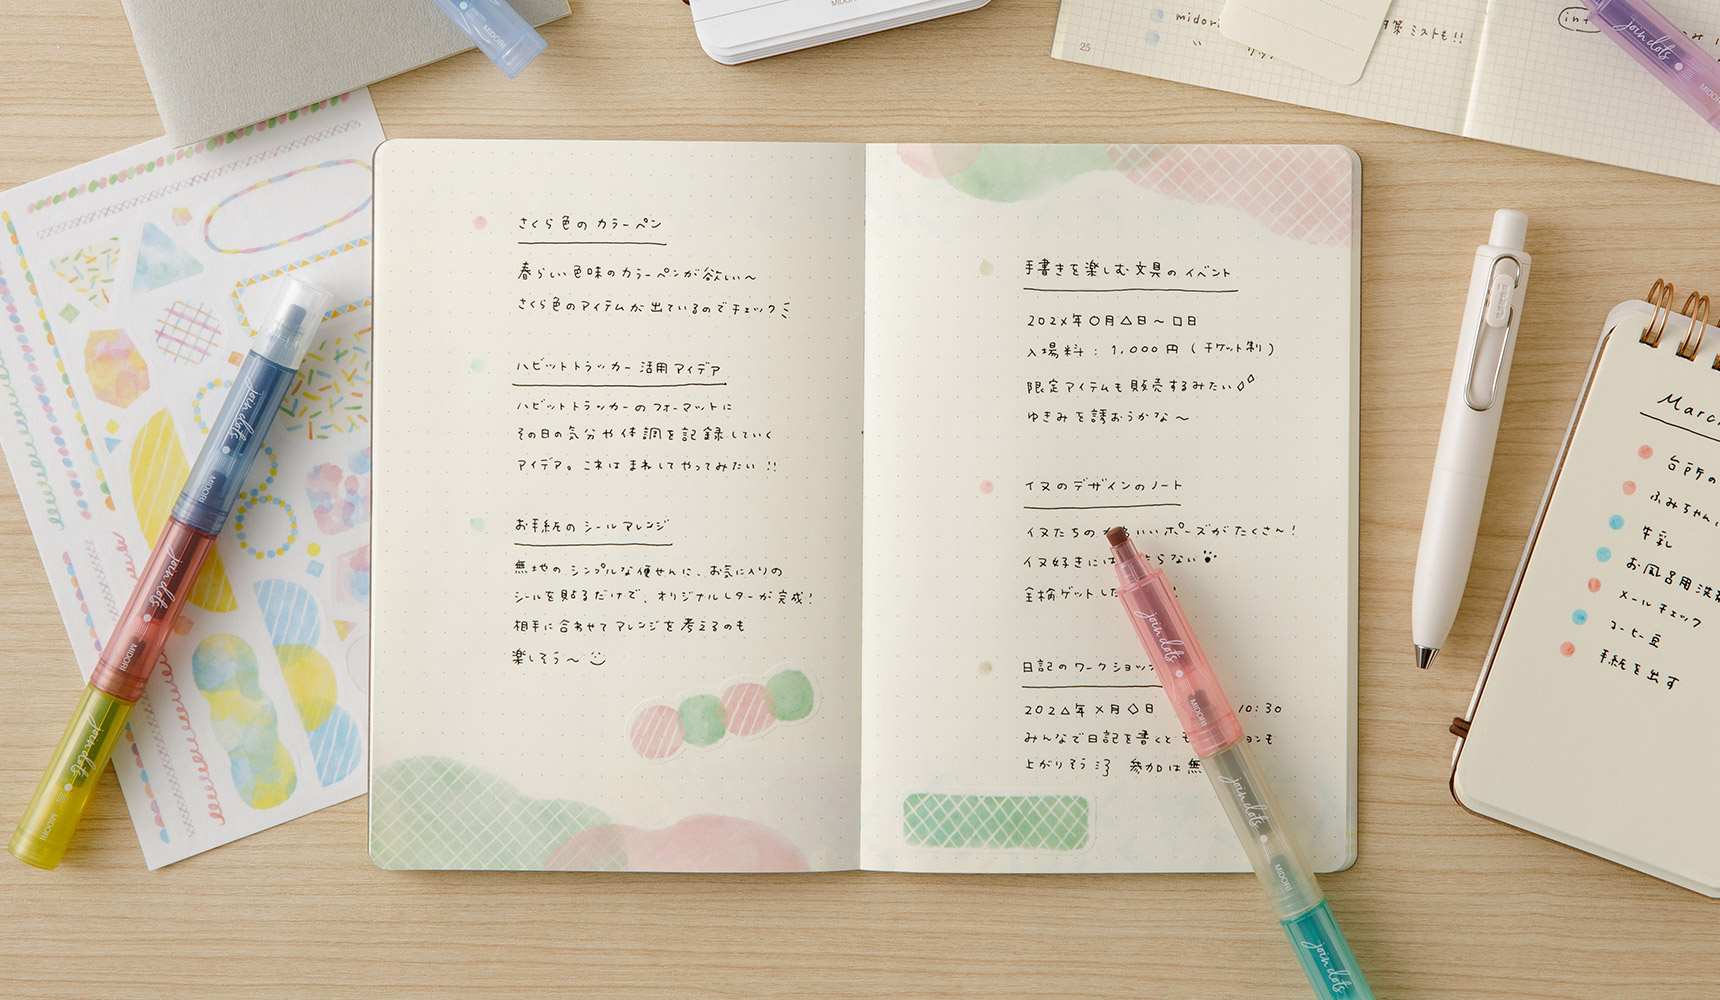 MIDORI
MIDORI
midori
策ミストも!!
25
join dots
MIDORI
さくら色のカラーペン
春らしい色味のカラーペンが欲しい〜
さくら色のアイテムが出ているのでチェック
ハビットトラッカー活用アイデア
ハビットトラッカーのフォーマットに
その日の気分や体調を記録していく
アイデア。これはまねしてやってみたい!!
お手紙のシールアレンジ
無地のシンプルな便せんに、お気に入りの
シールを貼るだけで、オリジナルレターが完成!
相手に合わせてアレンジを考えるのも
楽しそう〜
手書きを楽しむ文具のイベント
202X年○月△日〜□日
入場料:1,000円(チケット制)
限定アイテムも販売するみたい
ゆきみを誘おうかな〜
イヌのデザインのノート
イヌたちの いいポーズがたくさん!
イヌ好きには らない
全柄ゲットした !
日記のワークショップ
202△年×月◇日 10:30
みんなで日記を書くとモ ションも
上がりそう 参加は無
join dots
MIDORI
join dots
MIDORI
join dots
MIDORI
join dots
MIDORI
join dots
MIDORI
join dots
March
台所の
ふみちゃん
牛乳
お風呂用洗剤
メールチェック
コーヒー豆
手紙を出す